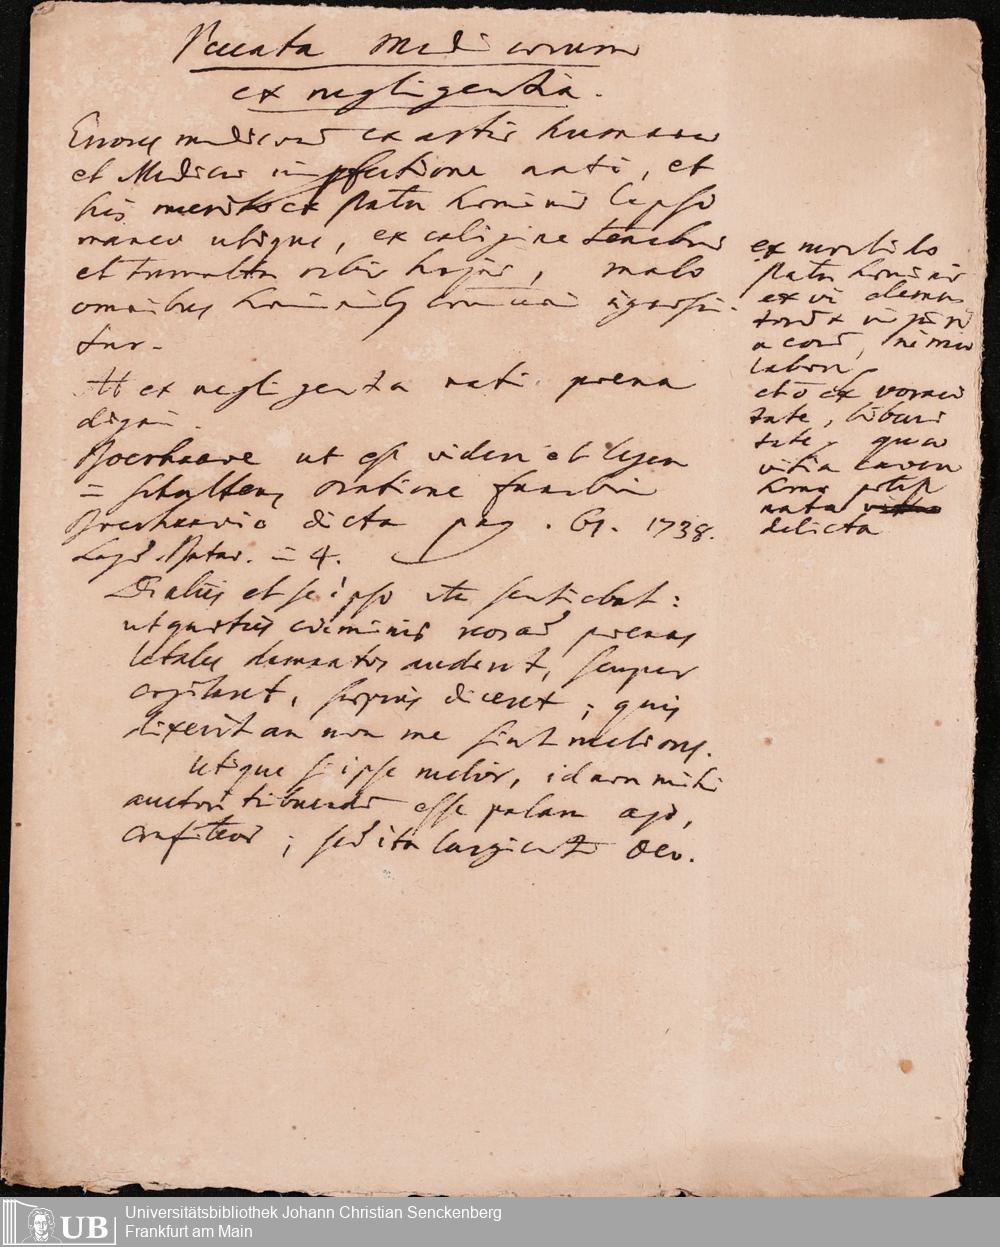 Peccata medicorum
ex negligentia.
Errores medicor ex artis humanae
et Medici imperfectione nati, et
his merito ex statu hominis lapso
manca utique, ex caligine tenebris
et tumultu orbis hujus, malo
omnibus hominibus communi ignoscun-
tur.
At ex negligentia nati poena
digni.
Boerhaave ut est videri et legere
= Schultens oratione funebri
Boerhaavio dicta pag. 61. 1738.
Lugd Batav. in 4.
De aliis et se ipso ita sentiebat:
ut quoties criminis reos ad poenas
letales damnatos audent, semper
cogitaret, saepius diceret; quis
dixerit an non me sint meliores.
Utique si ipse melior, id non mihi
auctori tribuendum esse palam ago,
confiteor; sed ita largienti Deo.
ex morbido
statu hominis
ex vi elemen
torum
labore
etc ex voraci
tate, bibaci
tate quae
vitia
nata
delicta
Universitätsbibliothek Johann Christian Senckenberg
Frankfurt am Main
UB